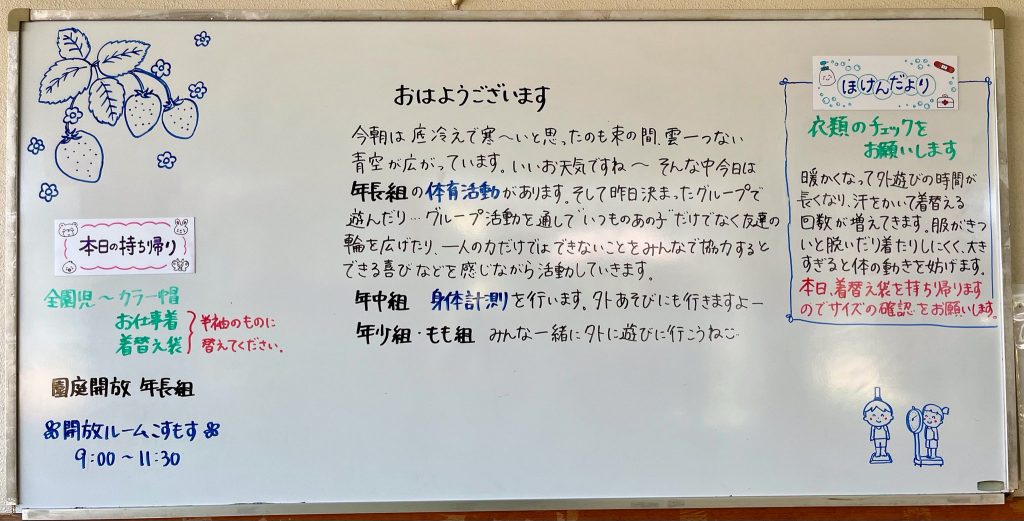 おはようございます
今朝は底冷えで寒〜いと思ったのも束の間、雲一つない
青空が広がっています。いいお天気ですね〜 そんな中今日は
年長組の体育活動があります。そして昨日決まったグループで
遊んだり…グループ活動を通して"いつものあの子"だけでなく友達の
輪を広げたり、一人の力だけではできないことをみんなで協力すると
できる喜びなどを感じながら活動していきます。
年中組 身体計測を行います。外あそびにも行きますよー
年少組・もも組 みんな一緒に外に遊びに行こうね
本日の持ち帰り
全園児〜カラー帽
お仕事着
着替え袋
半袖のものに
替えてください。
園庭開放 年長組
開放ルームこすもす
9:00〜11:30
ほけんだより
衣類のチェックを
お願いします
暖かくなって外遊びの時間が
長くなり、汗をかいて着替える
回数が増えてきます。服がきつ
いと脱いだり着たりしにくく、大き
すぎると体の動きを妨げます。
本日、着替え袋を持ち帰ります
のでサイズの確認をお願いします。